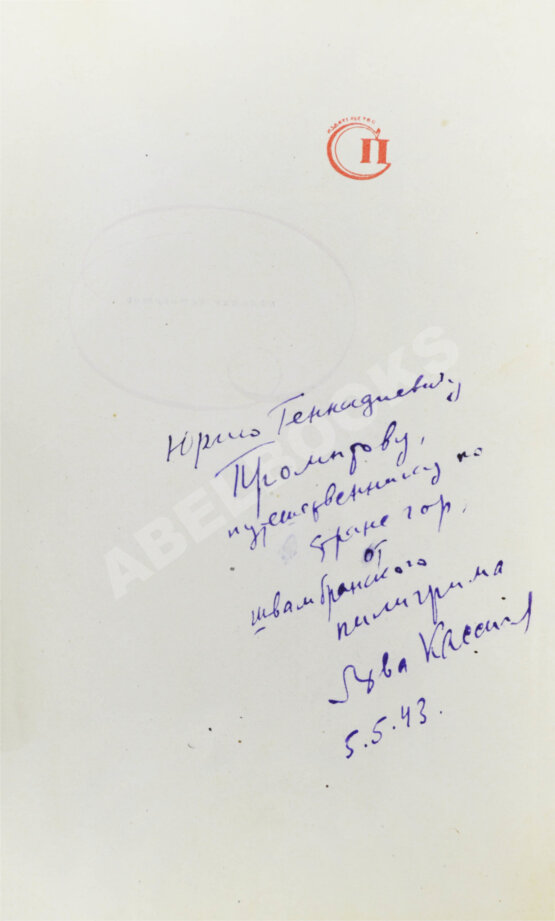 ИЗДАТЕЛЬСТВО
СП
Юрию Геннадиевичу
путешественнику по
стране гор,
от
швамбранского
пилигрима
Льва Кассиля
5.5.43.
ABELBOOKS